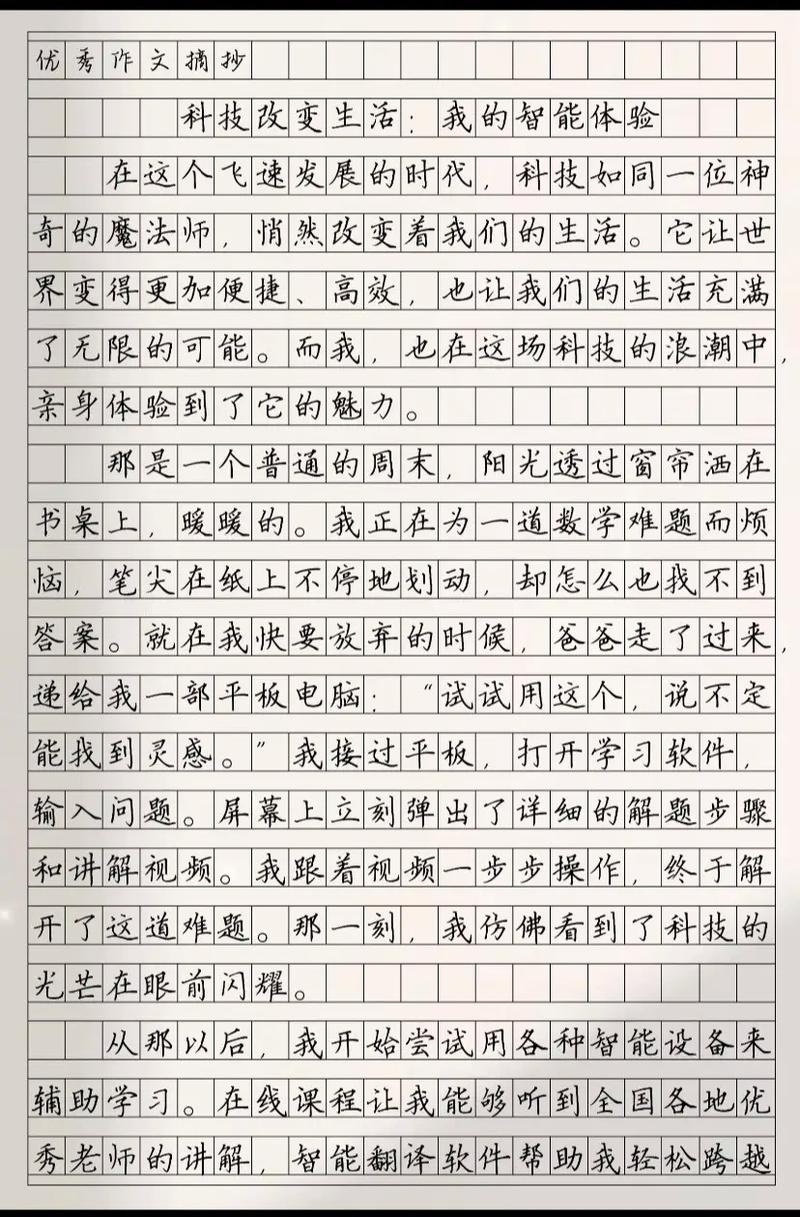 优秀作文摘抄
科技改变生活：我的智能体验
在这个飞速发展的时代，科技如同一位神
奇的魔法师，悄然改变着我们的生活。它让世
界变得更加便捷、高效，也让我们的生活充满
了无限的可能。而我，也在这场科技的浪潮中，
亲身体验到了它的魅力。
那是一个普通的周末，阳光透过窗帘洒在
书桌上，暖暖的。我正在为一道数学难题而烦
恼，笔尖在纸上不停地划动，却怎么也找不到
答案。就在我快要放弃的时候，爸爸走了过来，
递给我一部平板电脑：“试试用这个，说不定
能找到灵感。”我接过平板，打开学习软件，
输入问题。屏幕上立刻弹出了详细的解题步骤
和讲解视频。我跟着视频一步步操作，终于解
开了这道难题。那一刻，我仿佛看到了科技的
光芒在眼前闪耀。
从那以后，我开始尝试用各种智能设备来
辅助学习。在线课程让我能够听到全国各地优
秀老师的讲解，智能翻译软件帮助我轻松跨越